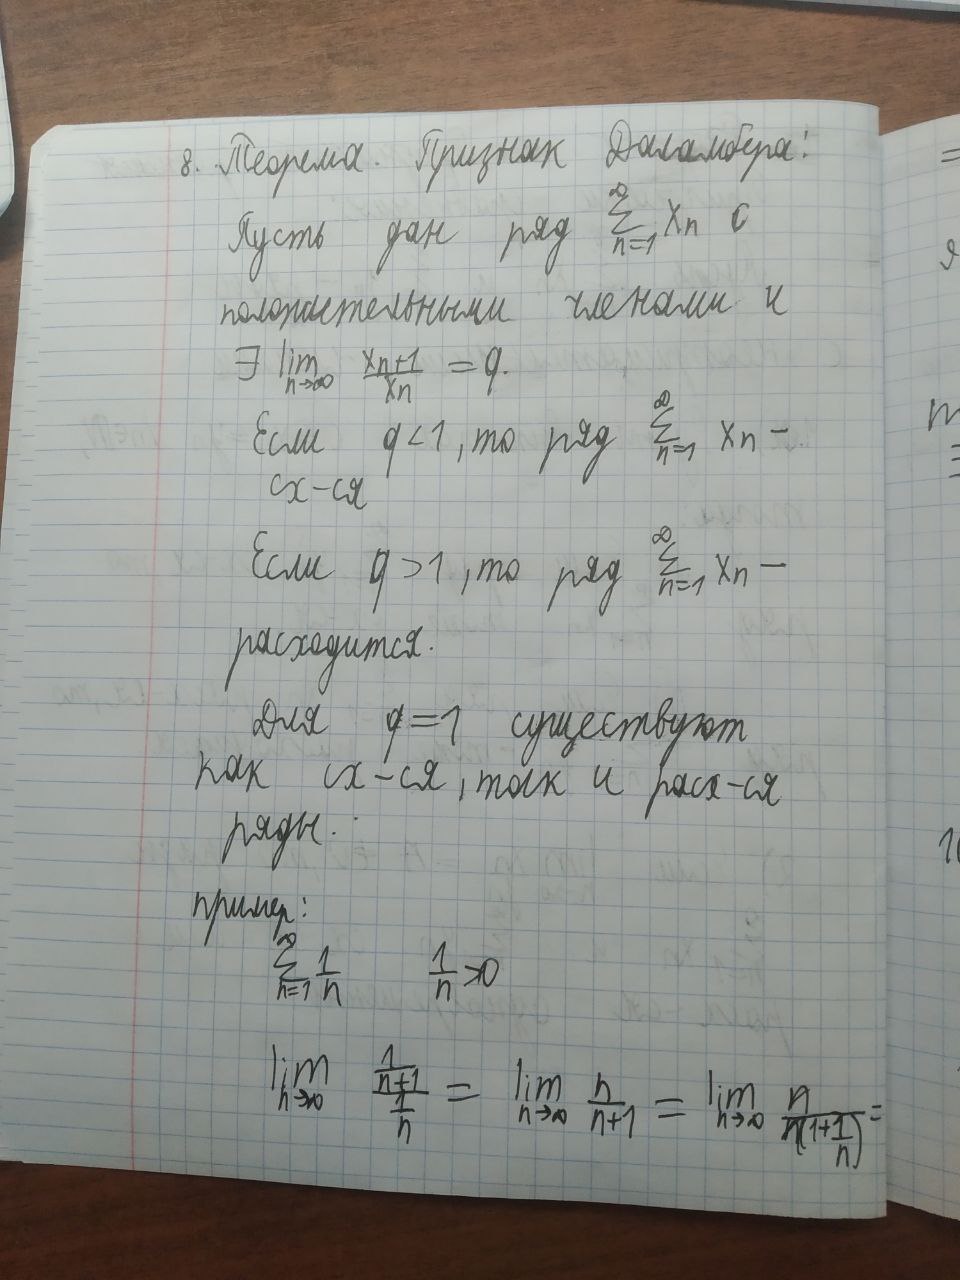 8. Теорема. Признак Даламбера:
Пусть дан ряд ∑_{n=1}^{∞} xn с
положительными членами и
∃ lim_{n→∞} x_{n+1}/x_n = q.
Если q<1, то ряд ∑_{n=1}^{∞} xn –
сх-ся
Если q>1, то ряд ∑_{n=1}^{∞} xn –
расходится.
Для q=1 существуют
как сх-ся, так и расх-ся
ряды.
пример:
∑_{n=1}^{∞} 1/n 1/n >0
lim_{n→∞} (1/(n+1))/(1/n) = lim_{n→∞} n/(n+1) = lim_{n→∞} n/(n(1+1/n)) =